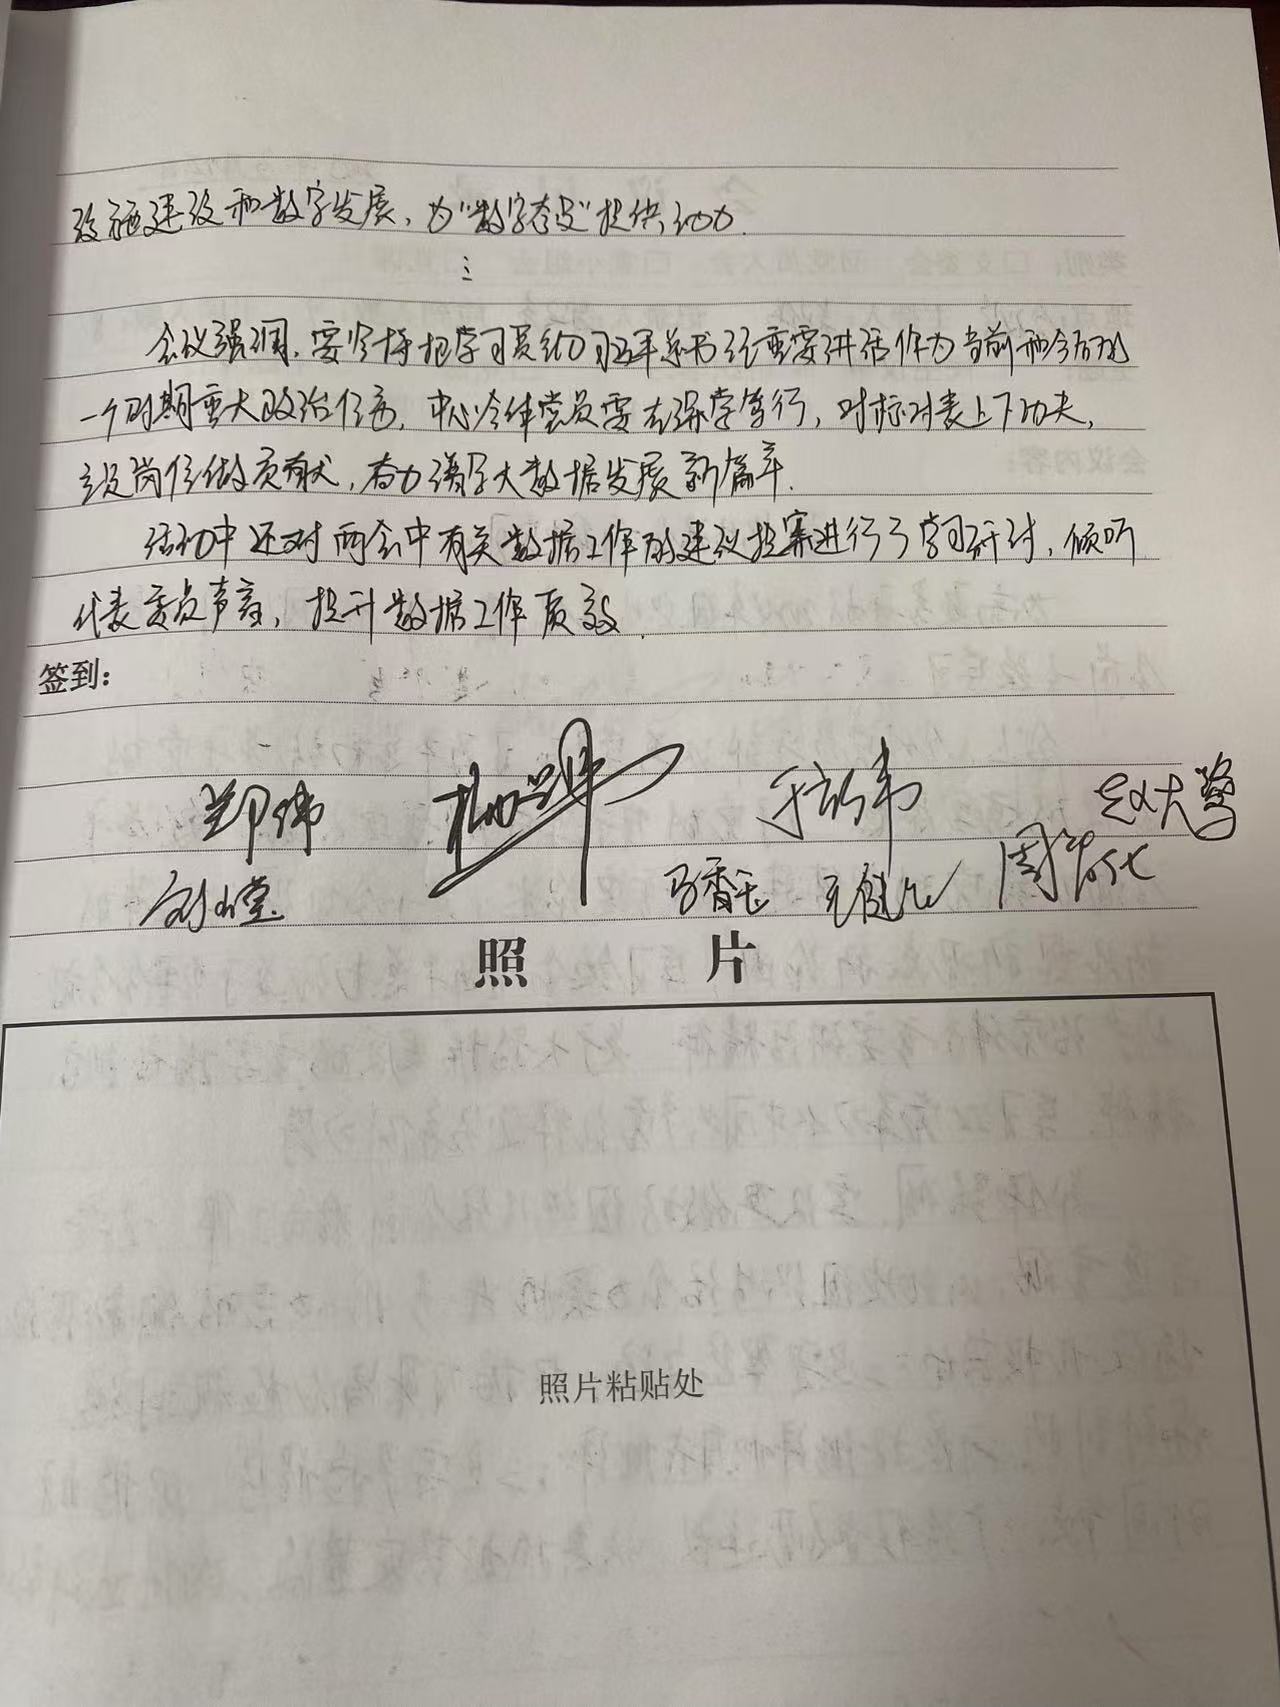 设施建设和数字发展，为“数字岱岳”提供动力.
会议强调，要坚持把学习贯彻习近平总书记重要讲话作为当前和今后的
一个时期重大政治任务，中心全体党员要在深学笃行，对标对表上下功夫，
立足岗位做贡献，奋力谱写大数据发展新篇章.
活动中还对两会中有关数据工作的建议提案进行了学习研讨，倾听
代表委员声音，提升数据工作质效.
签到：
郑伟 赵大莺
马香玉
照 片
照片粘贴处